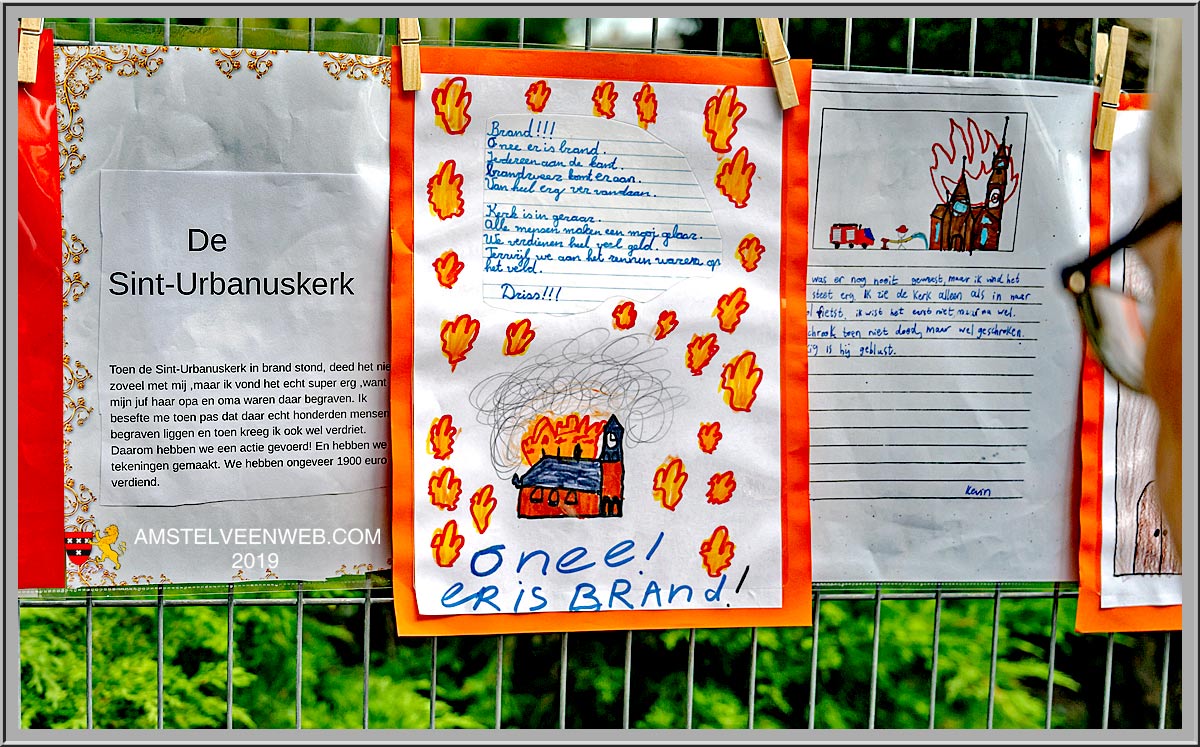 De
Sint-Urbanuskerk
Toen de Sint-Urbanuskerk in brand stond, deed het nie
zoveel met mij ,maar ik vond het echt super erg ,want
mijn juf haar opa en oma waren daar begraven. Ik
besefte me toen pas dat daar echt honderden mensen
begraven liggen en toen kreeg ik ook wel verdriet.
Daarom hebben we een actie gevoerd! En hebben we
tekeningen gemaakt. We hebben ongeveer 1900 euro
verdiend.
AMSTELVEENWEB.COM
2019
Brand!!!
O nee er is brand.
Iedereen aan de kant.
brandweer komt eraan.
Van heel erg ver vandaan.
Kerk is in gevaar.
Alle mensen maken een mooi gebaar.
We verdienen heel veel geld.
Terwijl we aan het rennen waren op
het veld.
Driss!!!
O nee!
ER is BRAnd!
was er nog nooit geweest, maar ik vind het
steet erg. Ik zie de kerk alleen als in naar
fietst, ik wist het eerst niet maar na wel.
schrook toen niet dood, maar wel geschroken.
is hij geblust.
Kevin